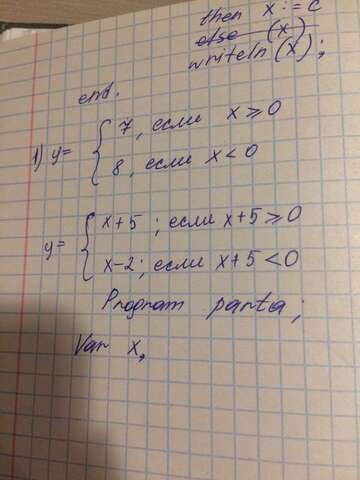 then x := c
else (x)
writeln (x) ;
end.
1) y= { 7, если x ≥ 0
8, если x < 0
y= { x+5 ; если x+5 ≥ 0
x-2; если x+5 < 0
Program parta ;
Var x,